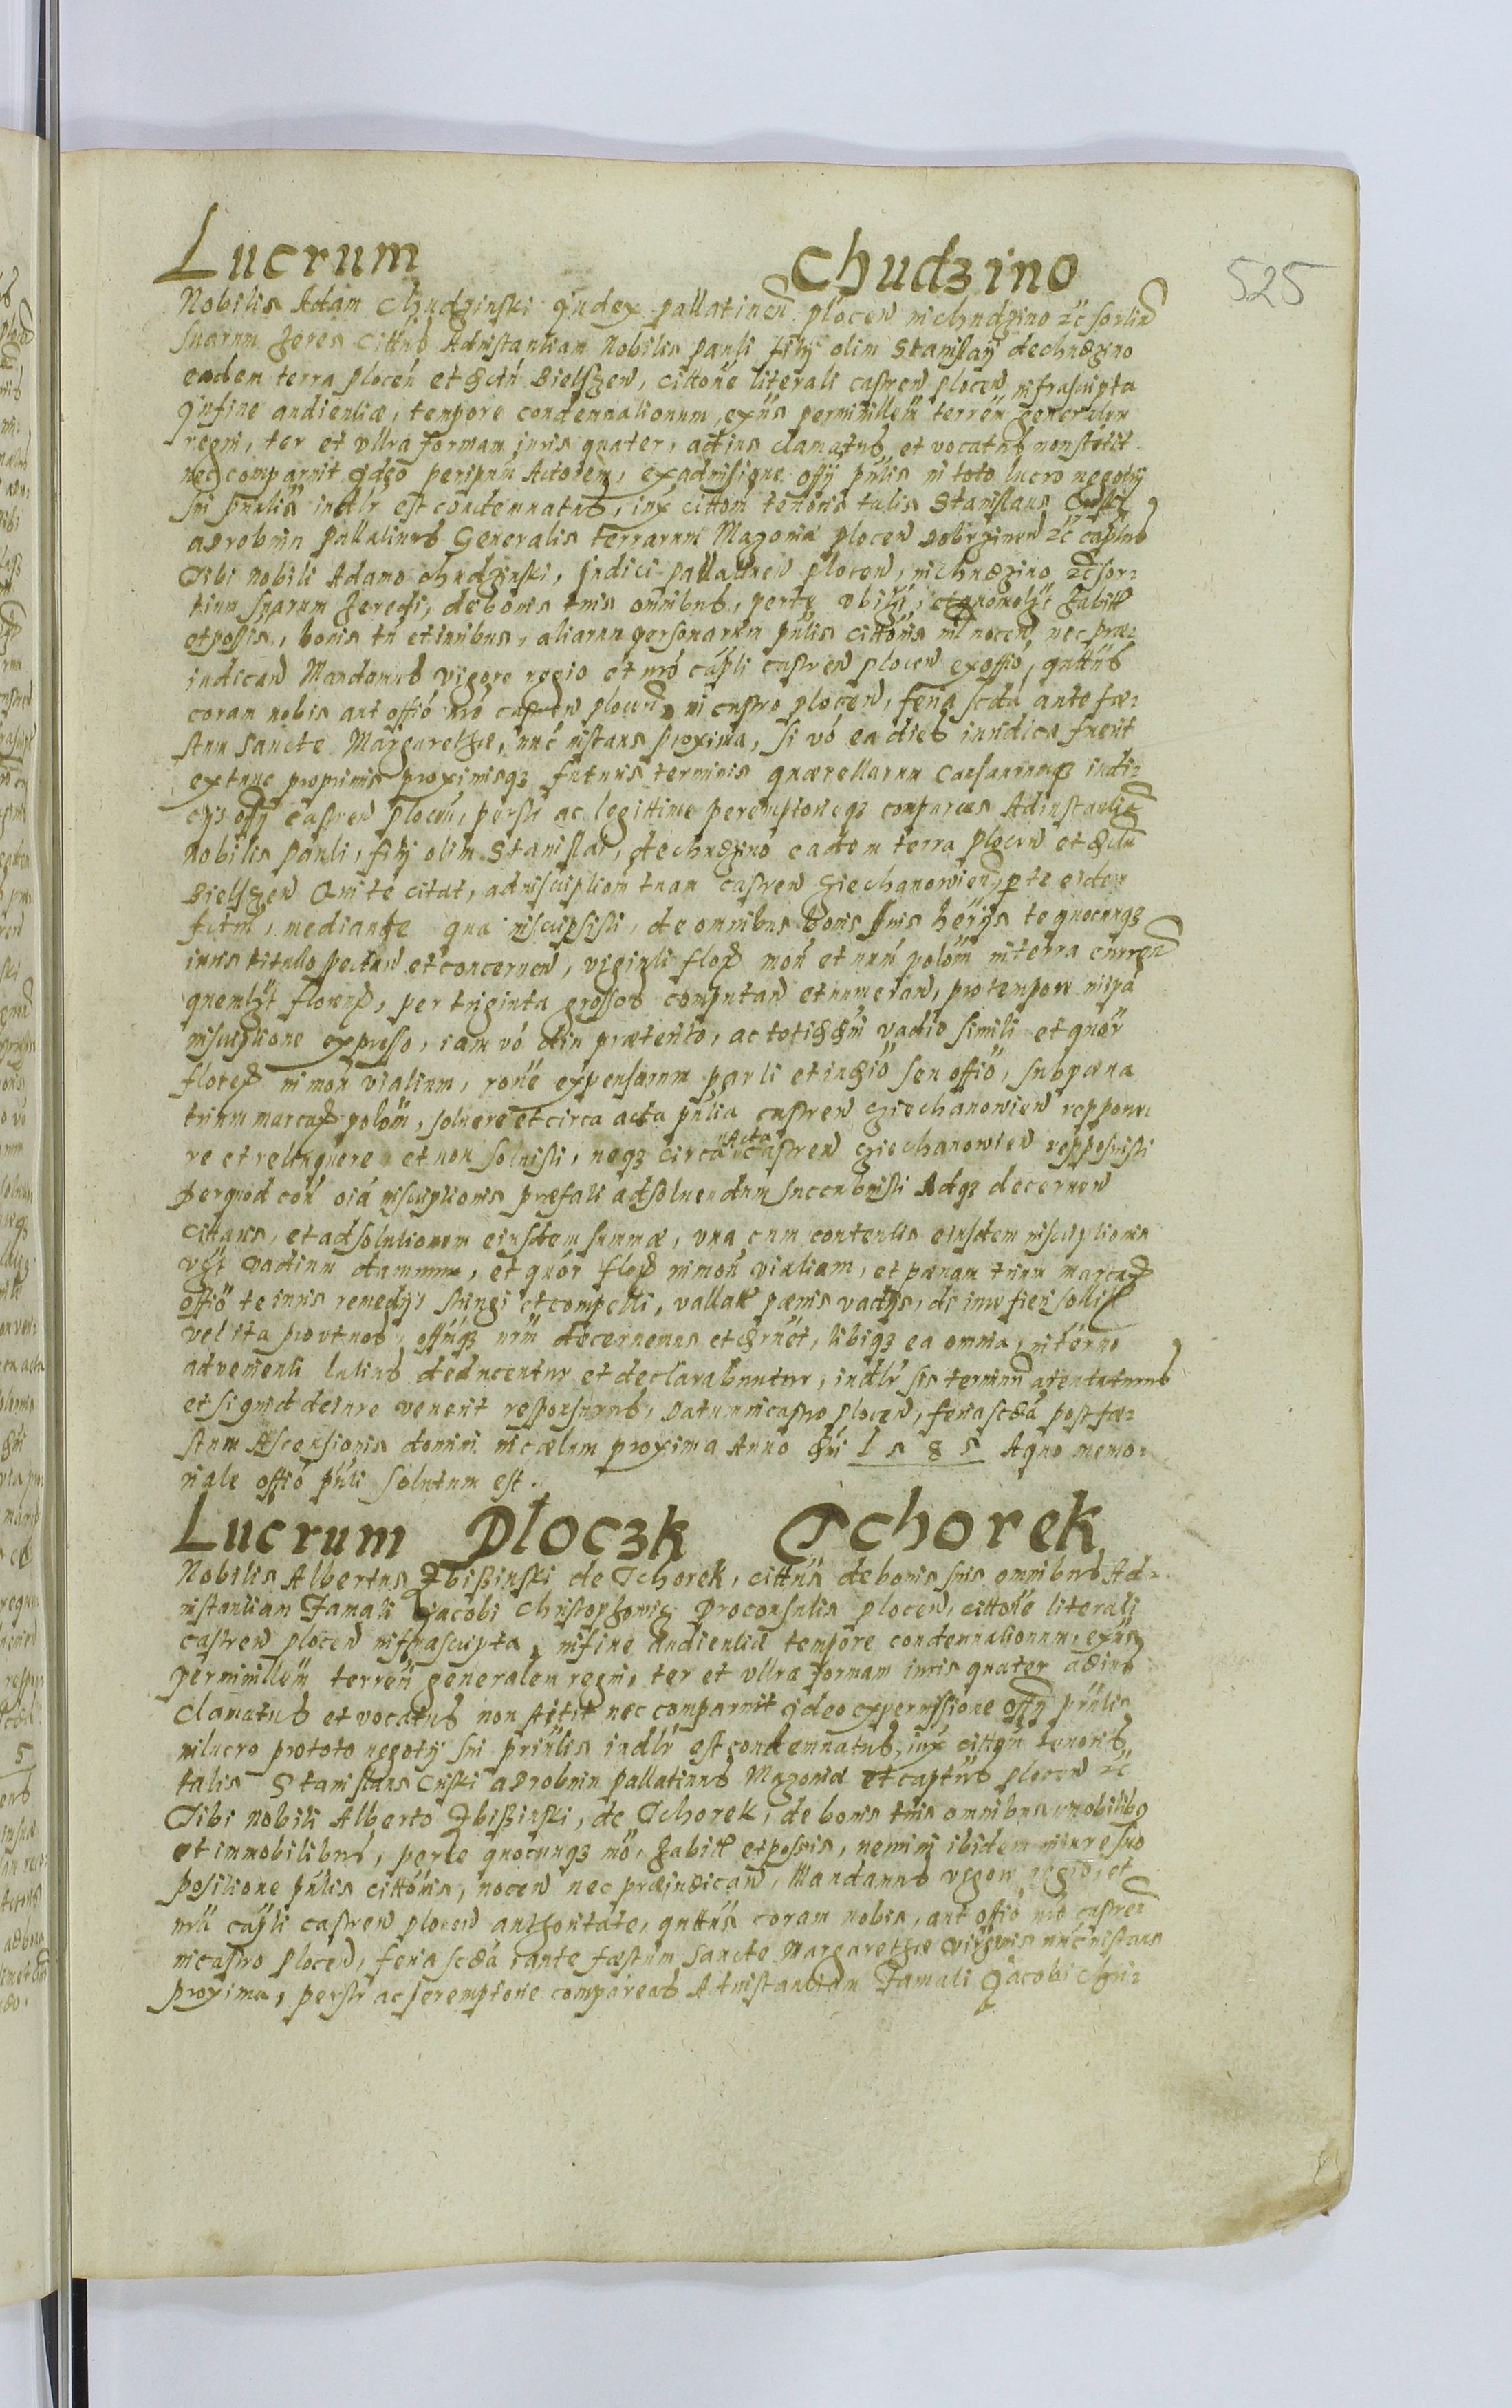 525
Lucrum Chudzino
Nobilis Adam Chudzinski Judex pallatineñ plocen in chudzino zc sortiu
suarum heres cittus Adinstantiam Nobilis pauli filij olim Stanislaij de chudzino
eadem terra plocen et dictu Bielszen, cittone literali castren plocen infrascripta
Infine audientiæ, tempore condemnationum, ex
regni, ter et vltra formam iuris quater, ad ius clamatus et vocatus non stetit
nec comparuit Ideo per ipsum Actorem, ex admissione offy pñtis in toto lucro negotij
sui pñtis indlr est condemnatus, iux cittom tenoris talis Stanislaus Criski
a Drobnin Pallatinus Generalis terrarum Mazoviæ plocen Dobrzinen zc captus
Tibi Nobili Adamo chudzinski, Judici pallatinen plocen, in chudzino zc sor-
tium suarum heredi, de bonis tuis omnibus, per te vbilzt, et quomolzt habit
et possis, bonis tñ et iuribus, aliarum personarum pñtis cittonis nil nocen nec præ-
iudican Mandamus vigore regio et nro capli castren plocen ex offio, quttus
coram nobis aut offio nro castren plocen in castro plocen, feria scda ante fæ-
stum sancte Margarethæ, nunc instans proxima, si vo ea dies iuridica fuerit
ex tunc proprimis proximisqz futuris terminis quærellarum causarumqz indi-
cijs offij castren plocen, persir ac legittime peremptorieqz compareas Adinstantia
Nobilis pauli, filij olim Stanislai, de chudzino eadem terra plocen et dictu
Bielszen Qui te citat, ad inscriptiom tuam castren Ziechanowien, p te eidem
factm, mediante qua inscripsisti, de omnibus bonis suis herijs te quocunqz
iuris titullo spectan et concernen, viginti flor mon et num polom in terra curren
quemlzt floren, per triginta grossos computan et numeran, pro tempore in ipa
inscriptione expresso, iam vo diu præterito, ac totiddm vadio simili et quor
flores in mon vialium, rone expensarum par li et iudio seu offio, sub pæna
trium marcar polom, soluere et circa acta pñlia castren Ziechanowien reppone-
re et relinquere et non soluisti, neqz circa Acta castren Ziechanowien repposuisti
per quod con oia inscriptionis præfati ad soluendum succubuisti Adqz decernen
cittaris, et ad solutionem eiusdem summæ, vna cum contentis eiusdem inscriptionis
vzt vadium damnum, et quor flor in mon vialiam, et pænam trium marcar
offio te iuris remedijs stringi et compelli, vallat pænis vadijs, de iure fieri sollit
vel ita provt nos, offuqz nrm decernemus et dcruet, tibiqz ea omnia, in terno
advenienti latius deducentur et declarabuntur, indlr sis terminu attentaturus
et si quid de iure venerit responsurus, Datum in castro plocen, feria scda post fæ-
stum Ascensionis domini in cælum proxima Anno dni 1585 A quo memo-
riale offio pñti solutum est.
Lucrum Ploczk Tchorek
Nobilis Albertus Zbißinski de Tchorek, cittus de bonis suis omnibus Ad-
instantiam Famati Jacobi Christophowicz Proconsulis plocen, cittone literali
castren plocen infrascripta, in fine audientiæ tempore condemnationum, ex
generalem regni, ter et vltra formam iuris quater ad ius
clamatus et vocatus non stetit nec comparuit Ideo ex permissione offij pñtis
in lucro pro toto negotij sui pñtis indlr est condemnatus, iux cittom tenoris
talis Stanislaus Criski a Drobnin pallatinus Mazoviæ et captus plocen zc
Tibi Nobili Alberto Zbißinski, de Tchorek, de bonis tuis omnibus mobilibq
et immobilibus, per te quocunqz mo, habit et possis, nemini ibidem in iure suo
positione pñtis cittonis, nocen nec præiudican, Mandamus vigore regio, et
nro capli castren plocen authoritate, quttus coram nobis, aut offio nro castren
in castro plocen, feria scda ante fæstum sancte Margarethæ virginis nunc instans
proxima, persir ac peremptorie compareas Adinstantiam Famati Jacobi Chri-